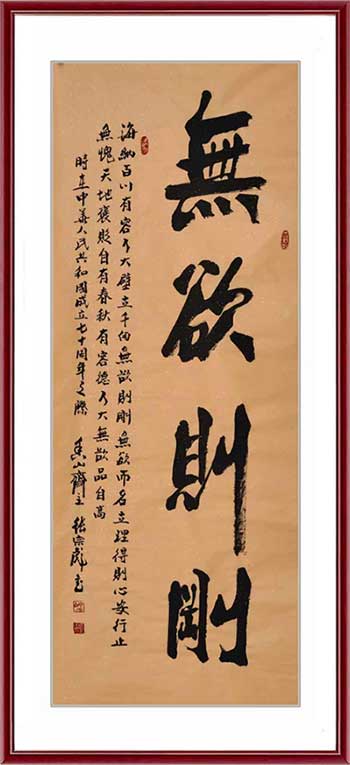 無欲則剛
海納百川有容乃大壁立千仞無欲則剛無欲而名立理得則心安行止
無愧天地褒貶自有春秋有容德乃大無欲品自高
時在中華人民共和國成立七十周年之際
山齋主 張宗彪書